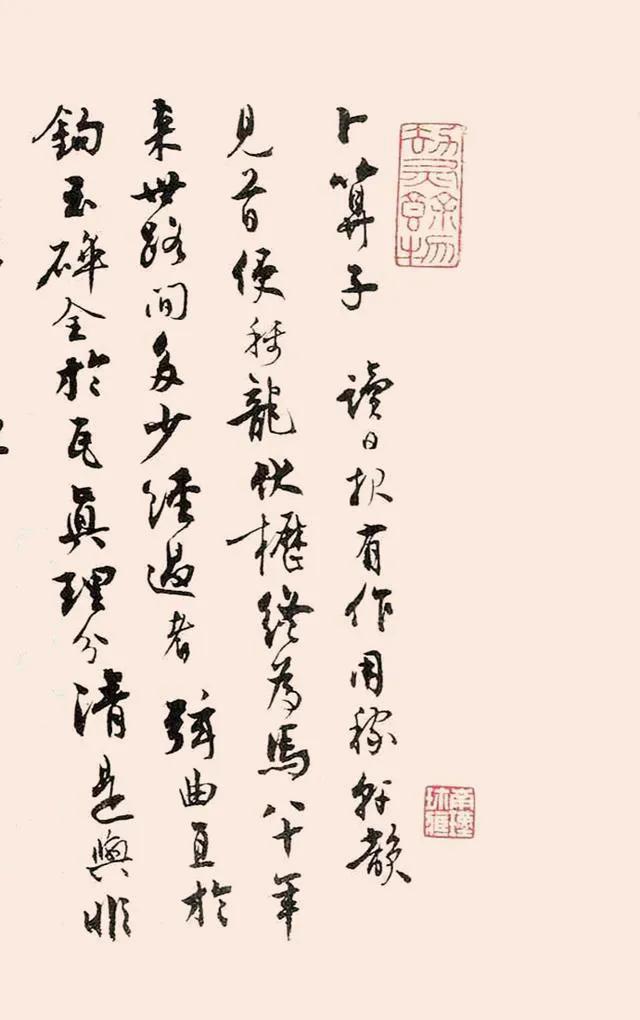 劫灰餘物
卜算子 讀日報有作用稼軒韻
見首便稱龍伏櫪終為馬八十年
來世路間多少經過者 弦曲直於
鈎玉碎全於瓦眞理分清是與非